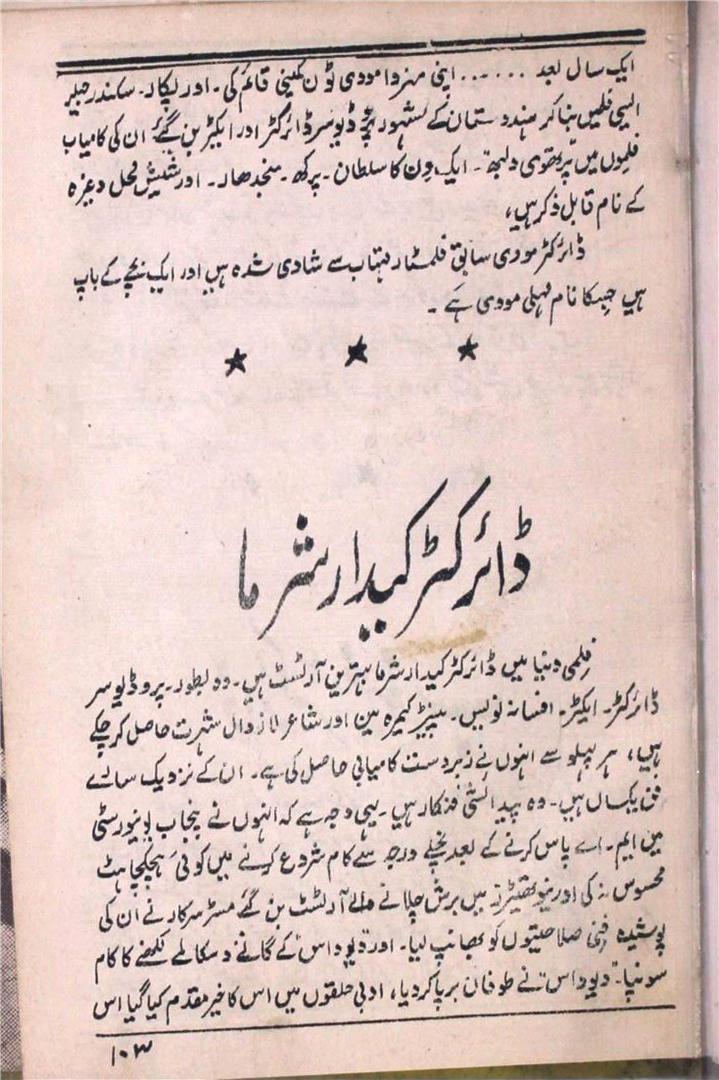 ایک سال بعد ...... اپنی منروا مودی ٹون کمپنی قائم کی۔ اور پکار۔ سکندر جیسی
ایسی فلمیں بنا کر ہندوستان کے مشہور پروڈیوسر ڈائرکٹر اور ایکٹر بن گئے ان کی کامیاب
فلموں میں پرتھوی ولبھ۔ ایک دن کا سلطان۔ پرکھ۔ منجدھار۔ اور شیش محل وغیرہ
کے نام قابل ذکر ہیں،
ڈائرکٹر مودی سابق فلمسٹار مہتاب سے شادی شدہ ہیں اور ایک بچے کے باپ
ہیں جسکا نام مہلی مودی ہے۔
★ ★ ★
ڈائرکٹر کیدار شرما
فلمی دنیا میں ڈائرکٹر کیدار شرما بہترین آرٹسٹ ہیں۔ وہ بطور۔ پروڈیوسر
ڈائرکٹر۔ ایکٹر۔ افسانہ نویس۔ پینٹر کیمرہ مین اور شاعر لازوال شہرت حاصل کر چکے
ہیں، ہر پہلو سے انہوں نے زبردست کامیابی حاصل کی ہے۔ ان کے نزدیک سارے
فن یکساں ہیں۔ وہ پیدائشی فنکار ہیں۔ یہی وجہ ہے کہ انہوں نے پنجاب یونیورسٹی
میں ایم۔ اے پاس کرنے کے بعد نچلے درجہ سے کام شروع کرنے میں کوئی ہچکچاہٹ
محسوس نہ کی اور نیو تھیٹرز میں برش چلانے والے آرٹسٹ بن گئے مسٹر سرکار نے ان کی
پوشیدہ فنی صلاحیتوں کو بھانپ لیا۔ اور "دیوداس" کے گانے و مکالمے لکھنے کا کام
سونپا۔ "دیوداس" نے طوفان برپا کر دیا، ادبی حلقوں میں اس کا خیر مقدم کیا گیا اس
۱۰۳